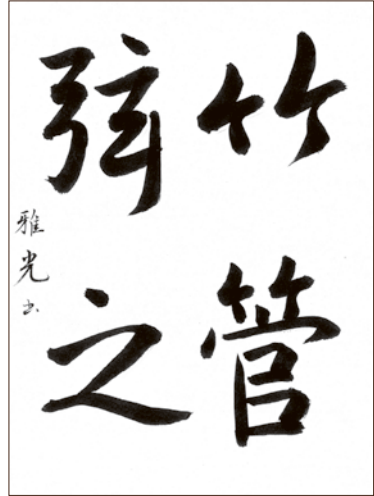 竹管
弦之
雅光書